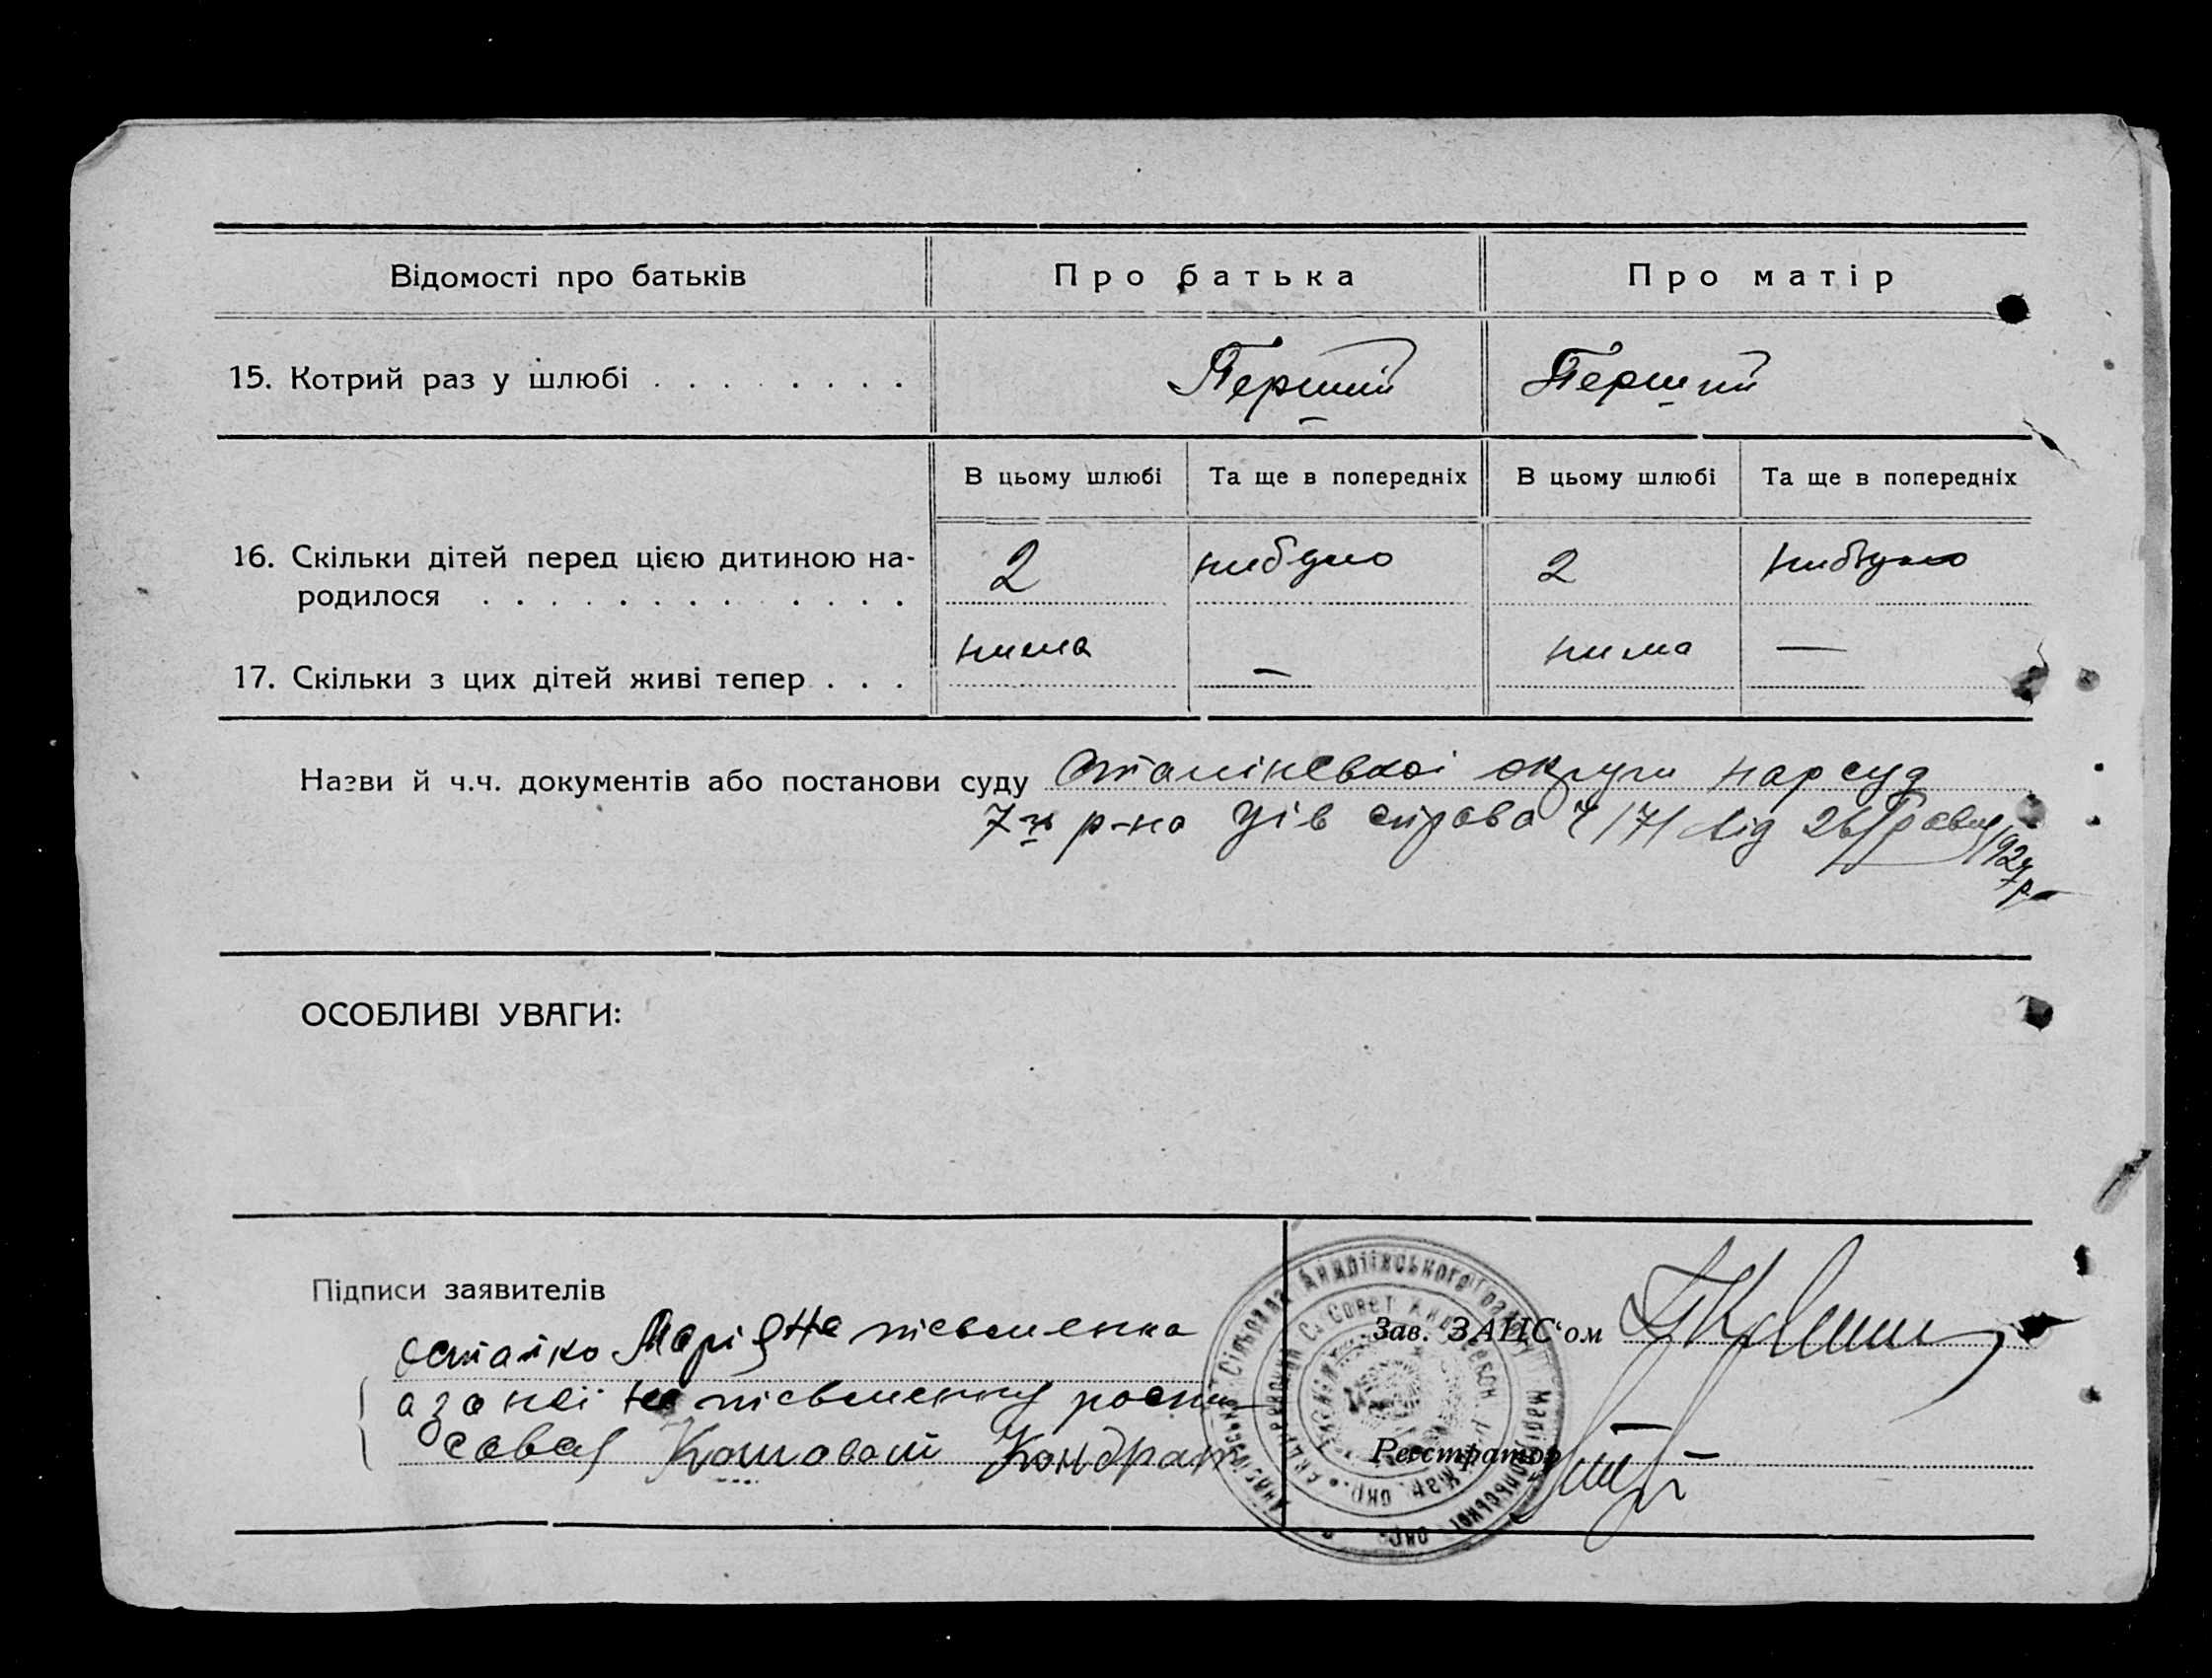 Відомості про батьків Про батька Про матір
15. Котрий раз у шлюбі . . . . . . . . Перший Перший
В цьому шлюбі Та ще в попередніх В цьому шлюбі Та ще в попередніх
16. Скільки дітей перед цією дитиною на-
родилося . . . . . . . . . . . . . 2 нибуло 2 нибуло
17. Скільки з цих дітей живі тепер . . . нима — нима —
Назви й ч.ч. документів або постанови суду Сталінської округи нарсуд
7го р-на справа ч 171 від 26 1927 р
ОСОБЛИВІ УВАГИ:
Підписи заявителів
Остапко письменна
а за неї не письменну роспи
Кошовий Кондрат
Зав. ЗАГС'ом
Реєстратор